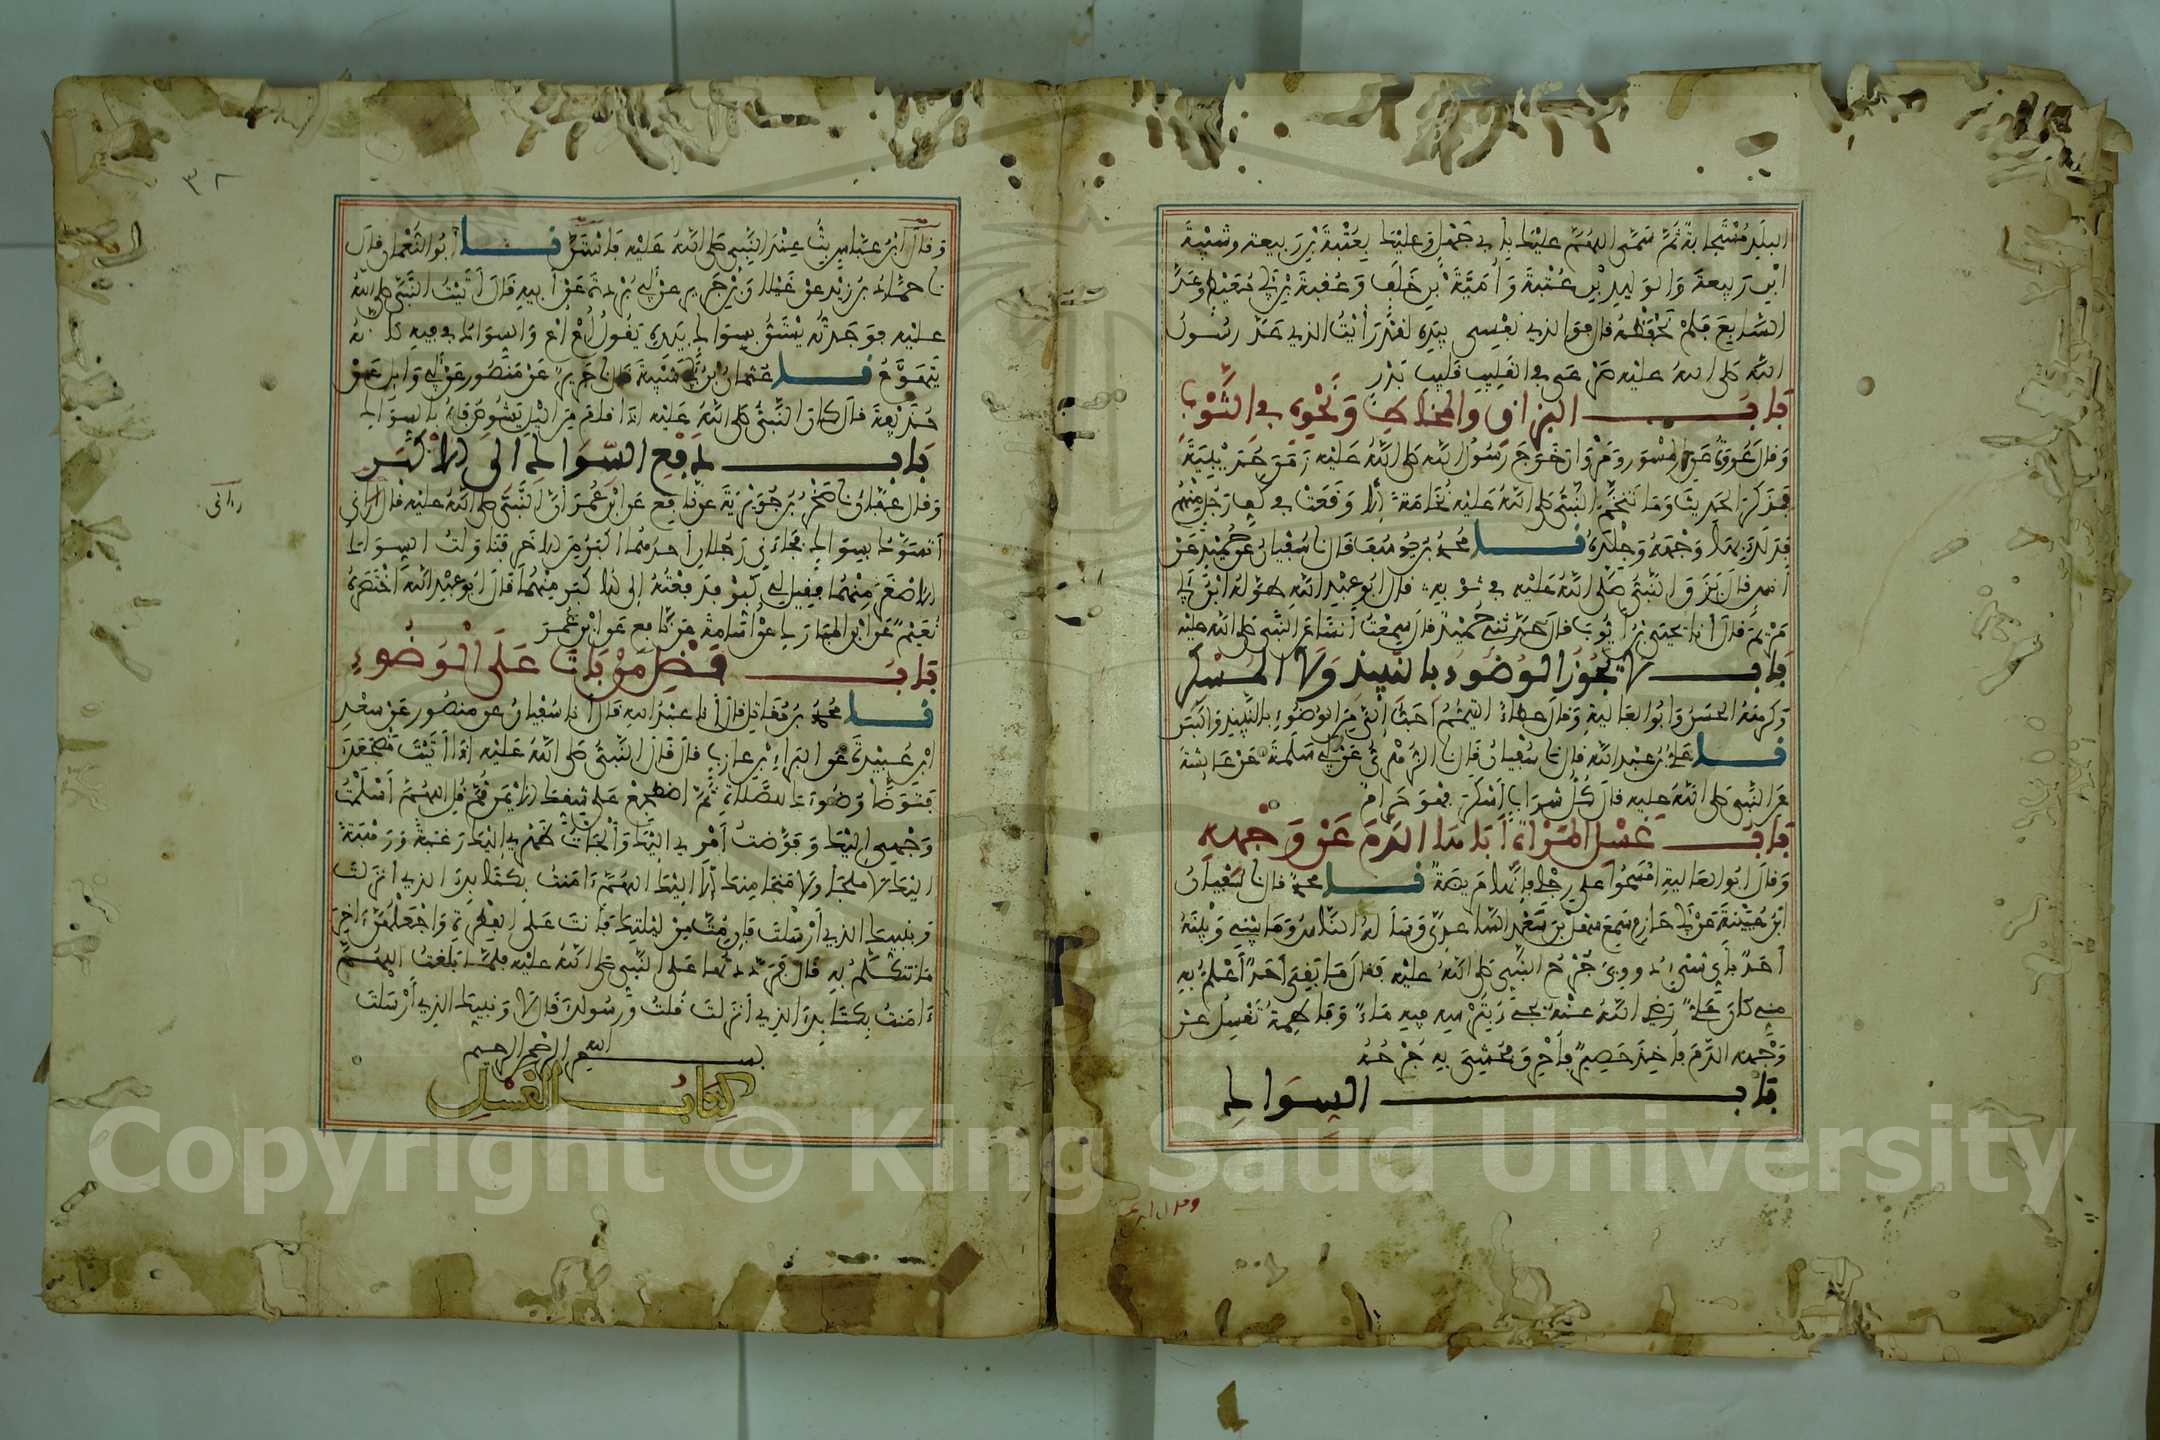 البلد مستجابة ثم سمى اللهم عليك بأبي جهل وعليك بعتبة بن ربيعة وشيبة
ابن ربيعة والوليد بن عتبة وأمية بن خلف وعقبة بن أبي معيط وعد
السابع فلم نحفظه قال فوالذي نفسي بيده لقد رأيت الذي عد رسول
الله صلى الله عليه صرعى في القليب قليب بدر
باب البزاق والمخاط ونحوه في الثوب
وقال عروة عن المسور ومروان خرج رسول الله صلى الله عليه زمن حديبية
فذكر الحديث وما تنخم النبي صلى الله عليه نخامة إلا وقعت في كف رجل منهم
فدلك بها وجهه وجلده نا محمد بن يوسف قال نا سفيان عن حميد عن
أنس قال بزق النبي صلى الله عليه في ثوبه قال أبو عبد الله طوله ابن أبي
مريم قال أنا يحيى بن أيوب قال حدثني حميد قال سمعت أنسا عن النبي صلى الله عليه
باب لا يجوز الوضوء بالنبيذ ولا المسكر
وكرهه الحسن وأبو العالية وقال عطاء التيمم أحب إلي من الوضوء بالنبيذ واللبن
نا علي بن عبد الله قال نا سفيان قال نا الزهري عن أبي سلمة عن عائشة
عن النبي صلى الله عليه قال كل شراب أسكر فهو حرام
باب غسل المرأة أباها الدم عن وجهه
وقال أبو العالية امسحوا على رجلي فإنها مريضة نا محمد قال نا سفيان
ابن عيينة عن أبي حازم سمع سهل بن سعد الساعدي وسأله الناس وما بيني وبينه
أحد بأي شيء دووي جرح النبي صلى الله عليه فقال ما بقي أحد أعلم به
مني كان علي رضي الله عنه يجيء بترسه فيه ماء وفاطمة تغسل عن
وجهه الدم فأخذ حصير فأحرق فحشي به جرحه
باب السواك
وقال ابن عباس بت عند النبي صلى الله عليه فاستن نا أبو النعمان قال
نا حماد بن زيد عن غيلان بن جرير عن أبي بردة عن أبيه قال أتيت النبي صلى الله
عليه فوجدته يستن بسواك بيده يقول أع أع والسواك في فيه كأنه
يتهوع نا عثمان بن أبي شيبة قال نا جرير عن منصور عن أبي وائل عن
حذيفة قال كان النبي صلى الله عليه إذا قام من الليل يشوص فاه بالسواك
باب دفع السواك إلى الأكبر
وقال عفان نا صخر بن جويرية عن نافع عن ابن عمر أن النبي صلى الله عليه قال أراني
أتسوك بسواك فجاءني رجلان أحدهما أكبر من الآخر فناولت السواك
الأصغر منهما فقيل لي كبر فدفعته إلى الأكبر منهما قال أبو عبد الله اختصره
نعيم عن ابن المبارك عن أسامة عن نافع عن ابن عمر
باب فضل من بات على الوضوء
نا محمد بن مقاتل قال أنا عبد الله قال أنا سفيان عن منصور عن سعد
ابن عبيدة عن البراء بن عازب قال قال النبي صلى الله عليه إذا أتيت مضجعك
فتوضأ وضوءك للصلاة ثم اضطجع على شقك الأيمن ثم قل اللهم أسلمت
وجهي إليك وفوضت أمري إليك وألجأت ظهري إليك رغبة ورهبة
إليك لا ملجأ ولا منجا منك إلا إليك اللهم ءامنت بكتابك الذي أنزلت
وبنبيك الذي أرسلت فإن مت من ليلتك فأنت على الفطرة واجعلهن ءاخر
ما تتكلم به قال فرددتها على النبي صلى الله عليه فلما بلغت اللهم
ءامنت بكتابك الذي أنزلت قلت ورسولك قال لا ونبيك الذي أرسلت
بسم الله الرحمن الرحيم
كتاب الغسل
٣٨
Copyright © King Saud University